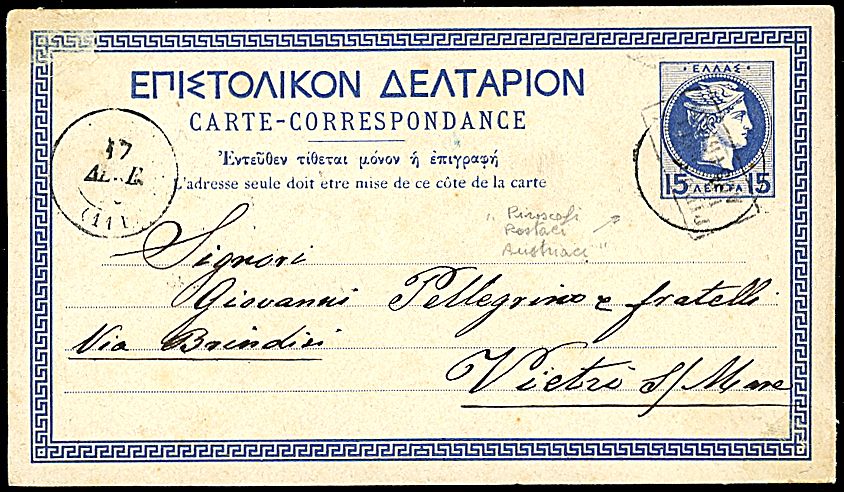 ΕΠΙΣΤΟΛΙΚΟΝ ΔΕΛΤΑΡΙΟΝ
CARTE-CORRESPONDANCE
Ἐντεῦθεν τίθεται μόνον ἡ ἐπιγραφή
L'adresse seule doit etre mise de ce côte de la carte
·ΕΛΛΑΣ·
15 ΛΕΠΤΑ 15
17
ΔΕΚΕ.
(111)
„ Piroscafi
Postali
Austriaci "
Signori
Giovanni Pellegrino e fratelli
Via Brindisi
Vietri s/Mare